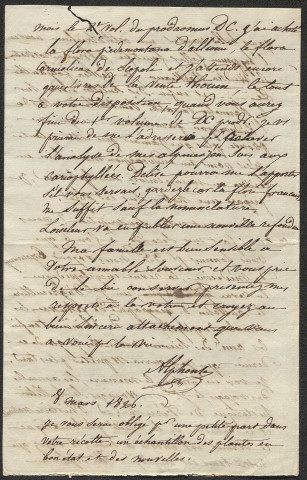 mois le 1er Vol. du prodromus DC. j'ai acheté
la flora pedemontana d'allioni, la flora
carniolica de Scopoli et j'attends encore
de la vente thouin. le tout
à votre disposition, quand vous aurez
fini du 1er volume de DC prod. je vs
prierai de me l'adresser
l'analyse de mes jusqu'aux
caryophyllées. Delise pourra me l'apporter
s'il vous servait, gardez le car la flore francaise
me suffit sauf la nomenclature,
Loiseleur va en publier une nouvelle refondue
Ma famille est bien sensible à
votre aimable souvenir, et vous prie
de le lui conserver, presentez mes
respects à la votre et croyez au
bien sincère attachement que vous
a voué pr la vie
Alphonse
8 mars 1826.
je vous serai obligé pr une petite part dans
votre recolte. un échantillon des plantes en
bon état et des nouvelles.